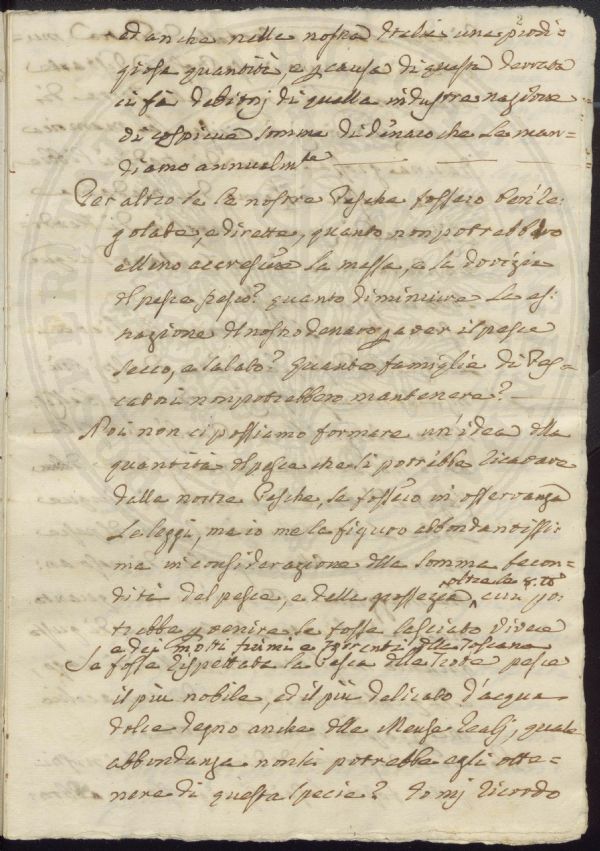 2
ed anche nella nostra Italia una prodi=
giosa quantità, e p causa di questa derrata
ci fà debitorj di quella industre nazione
di cospicue somme di dinaro che le man=
diamo annualmte
Per altro se le nostre Pesche fossero ben re=
golate, e dirette, quanto non potrebbero
elleno accrescere la massa, e la dovizia
del pesce fresco? quanto diminuire la esi=
nazione del nostro denaro p aver il pesce
secco, e salato? Quante famiglie di Pes=
catori non potrebbero mantenere?
Noi non ci possiamo formare un'idea della
quantità del pesce che si potrebbe ricavare
dalle nostre Pesche, se fossero in osservanza
le leggi, ma io me la figuro abbondantissi=
ma in considerazione della somma fecon=
dità del pesce, e della grossezza, a cui po=
oltre le
trebbe pervenire se fosse lasciato vivere
e dei molti fiumi e torrenti della Toscana
Se fosse rispettata la Pesca delle Trote pesce
il più nobile, ed il più delicato d'acqua
dolce degno anche delle Mense Realj, quale
abbondanza non si potrebbe egli otte=
nere di questa specie? Io mj ricordo